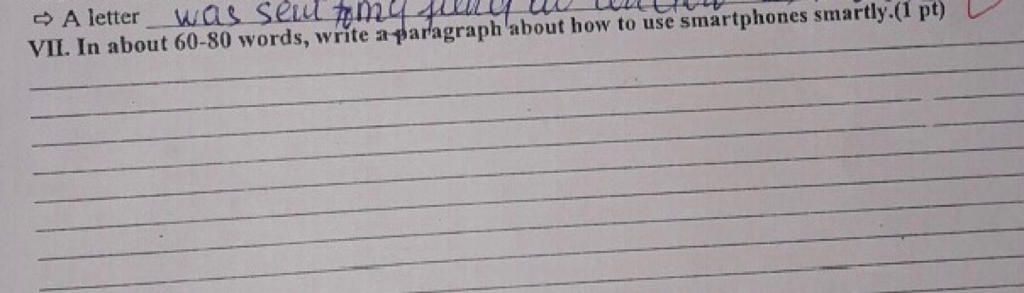 ⇨ A letter was sent to my
VII. In about 60-80 words, write a paragraph about how to use smartphones smartly.(1 pt)